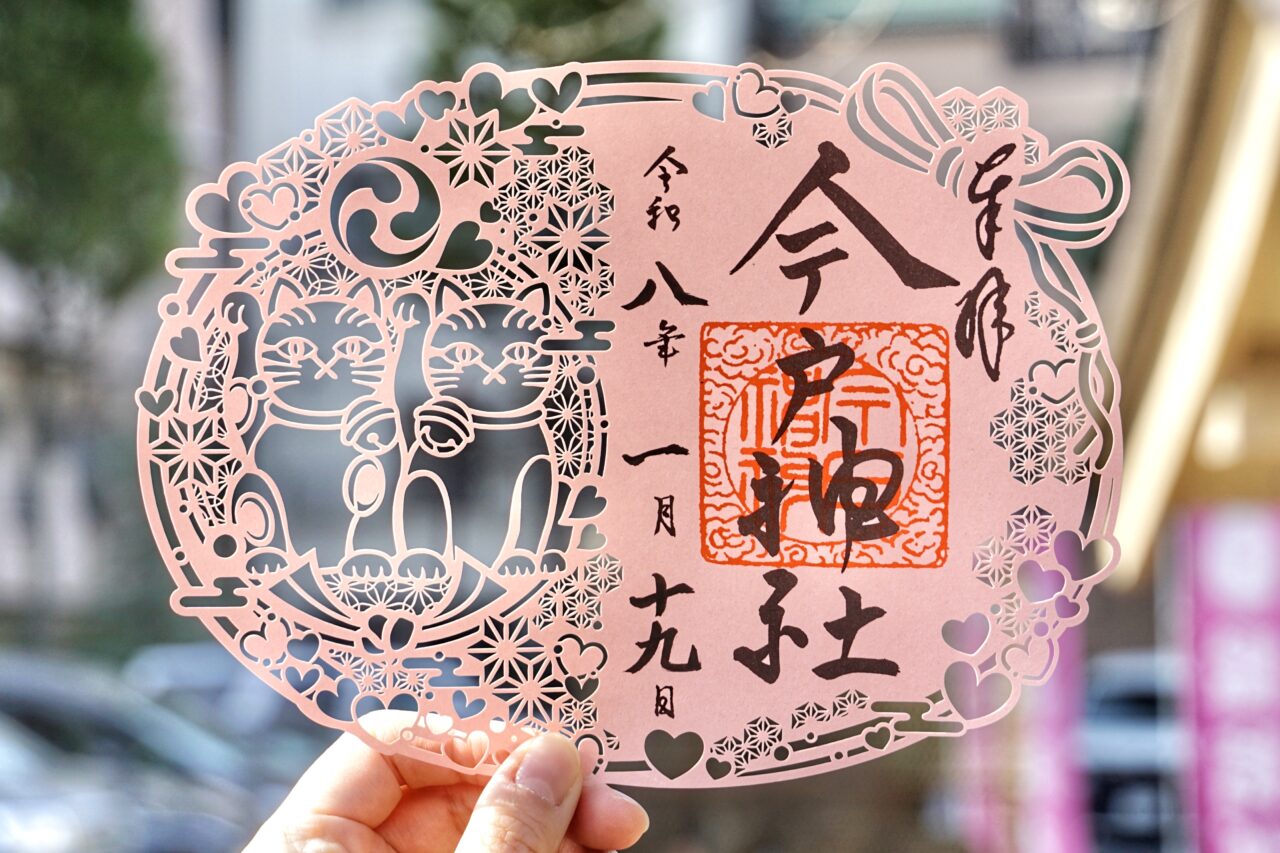 奉拝
今戸神社
令和八年一月十九日